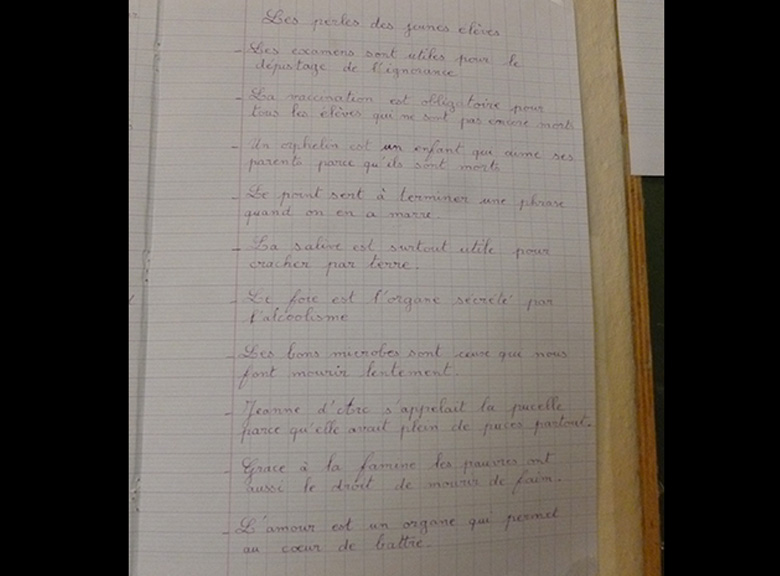 Les perles des jeunes élèves
- Les examens sont utiles pour le
dépistage de l'ignorance
- La vaccination est obligatoire pour
tous les élèves qui ne sont pas encore morts
- Un orphelin est un enfant qui aime ses
parents parce qu'ils sont morts
- Le point sert à terminer une phrase
quand on en a marre.
- La salive est surtout utile pour
cracher par terre.
- Le foie est l'organe sécrété par
l'alcoolisme
- Les bons microbes sont ceux qui nous
font mourir lentement.
- Jeanne d'Arc s'appelait la pucelle
parce qu'elle avait plein de puces partout.
- Grace à la famine les pauvres ont
aussi le droit de mourir de faim.
- L'amour est un organe qui permet
au cœur de battre.